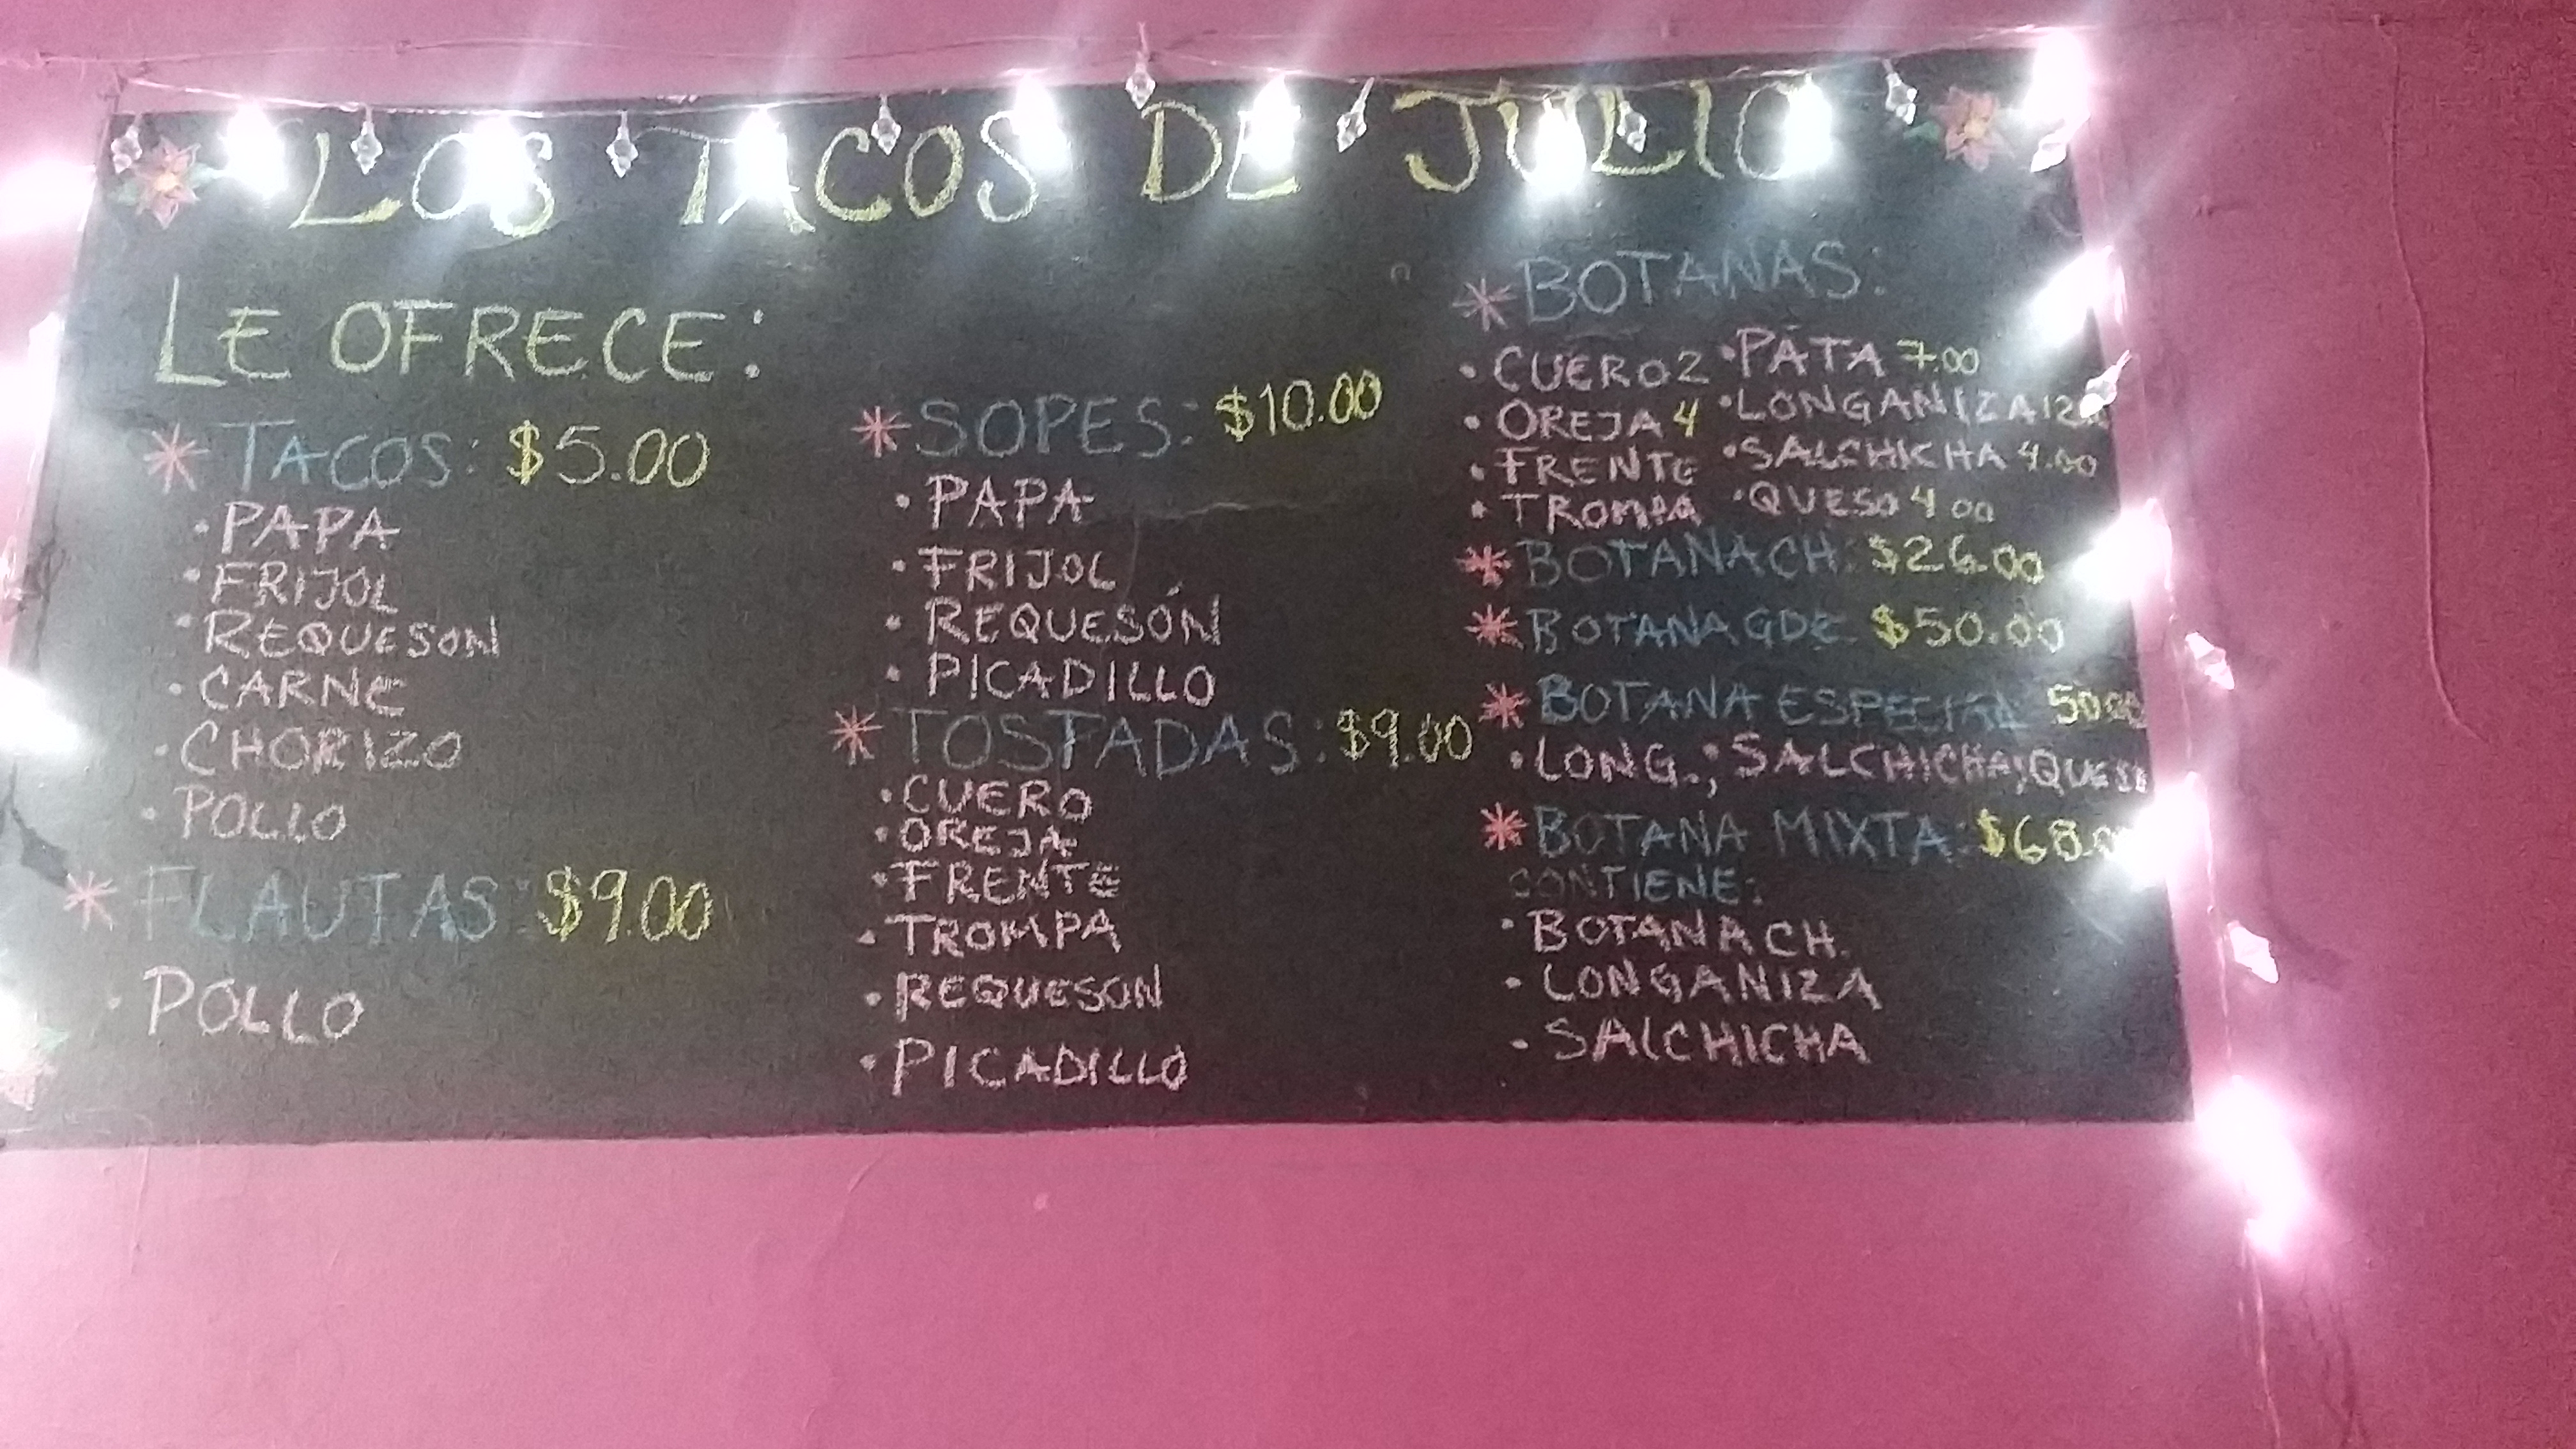 LOS TACOS DE JULIO
LE OFRECE:
* TACOS: $5.00
• PAPA
• FRIJOL
• REQUESON
• CARNE
• CHORIZO
• POLLO
* FLAUTAS: $9.00
• POLLO
* SOPES: $10.00
• PAPA
• FRIJOL
• REQUESÓN
• PICADILLO
* TOSTADAS: $9.00
• CUERO
• OREJA
• FRENTE
• TROMPA
• REQUESON
• PICADILLO
* BOTANAS:
• CUERO 2 • PATA 7.00
• OREJA 4 • LONGANIZA 12
• FRENTE • SALCHICHA 4.00
• TROMPA • QUESO 4 00
* BOTANA CH: $26.00
* BOTANA GDE $50.00
* BOTANA ESPECIAL 50
• LONG.; SALCHICHA; QUESO
* BOTANA MIXTA: $68.0
CONTIENE:
• BOTANA CH.
• LONGANIZA
• SALCHICHA